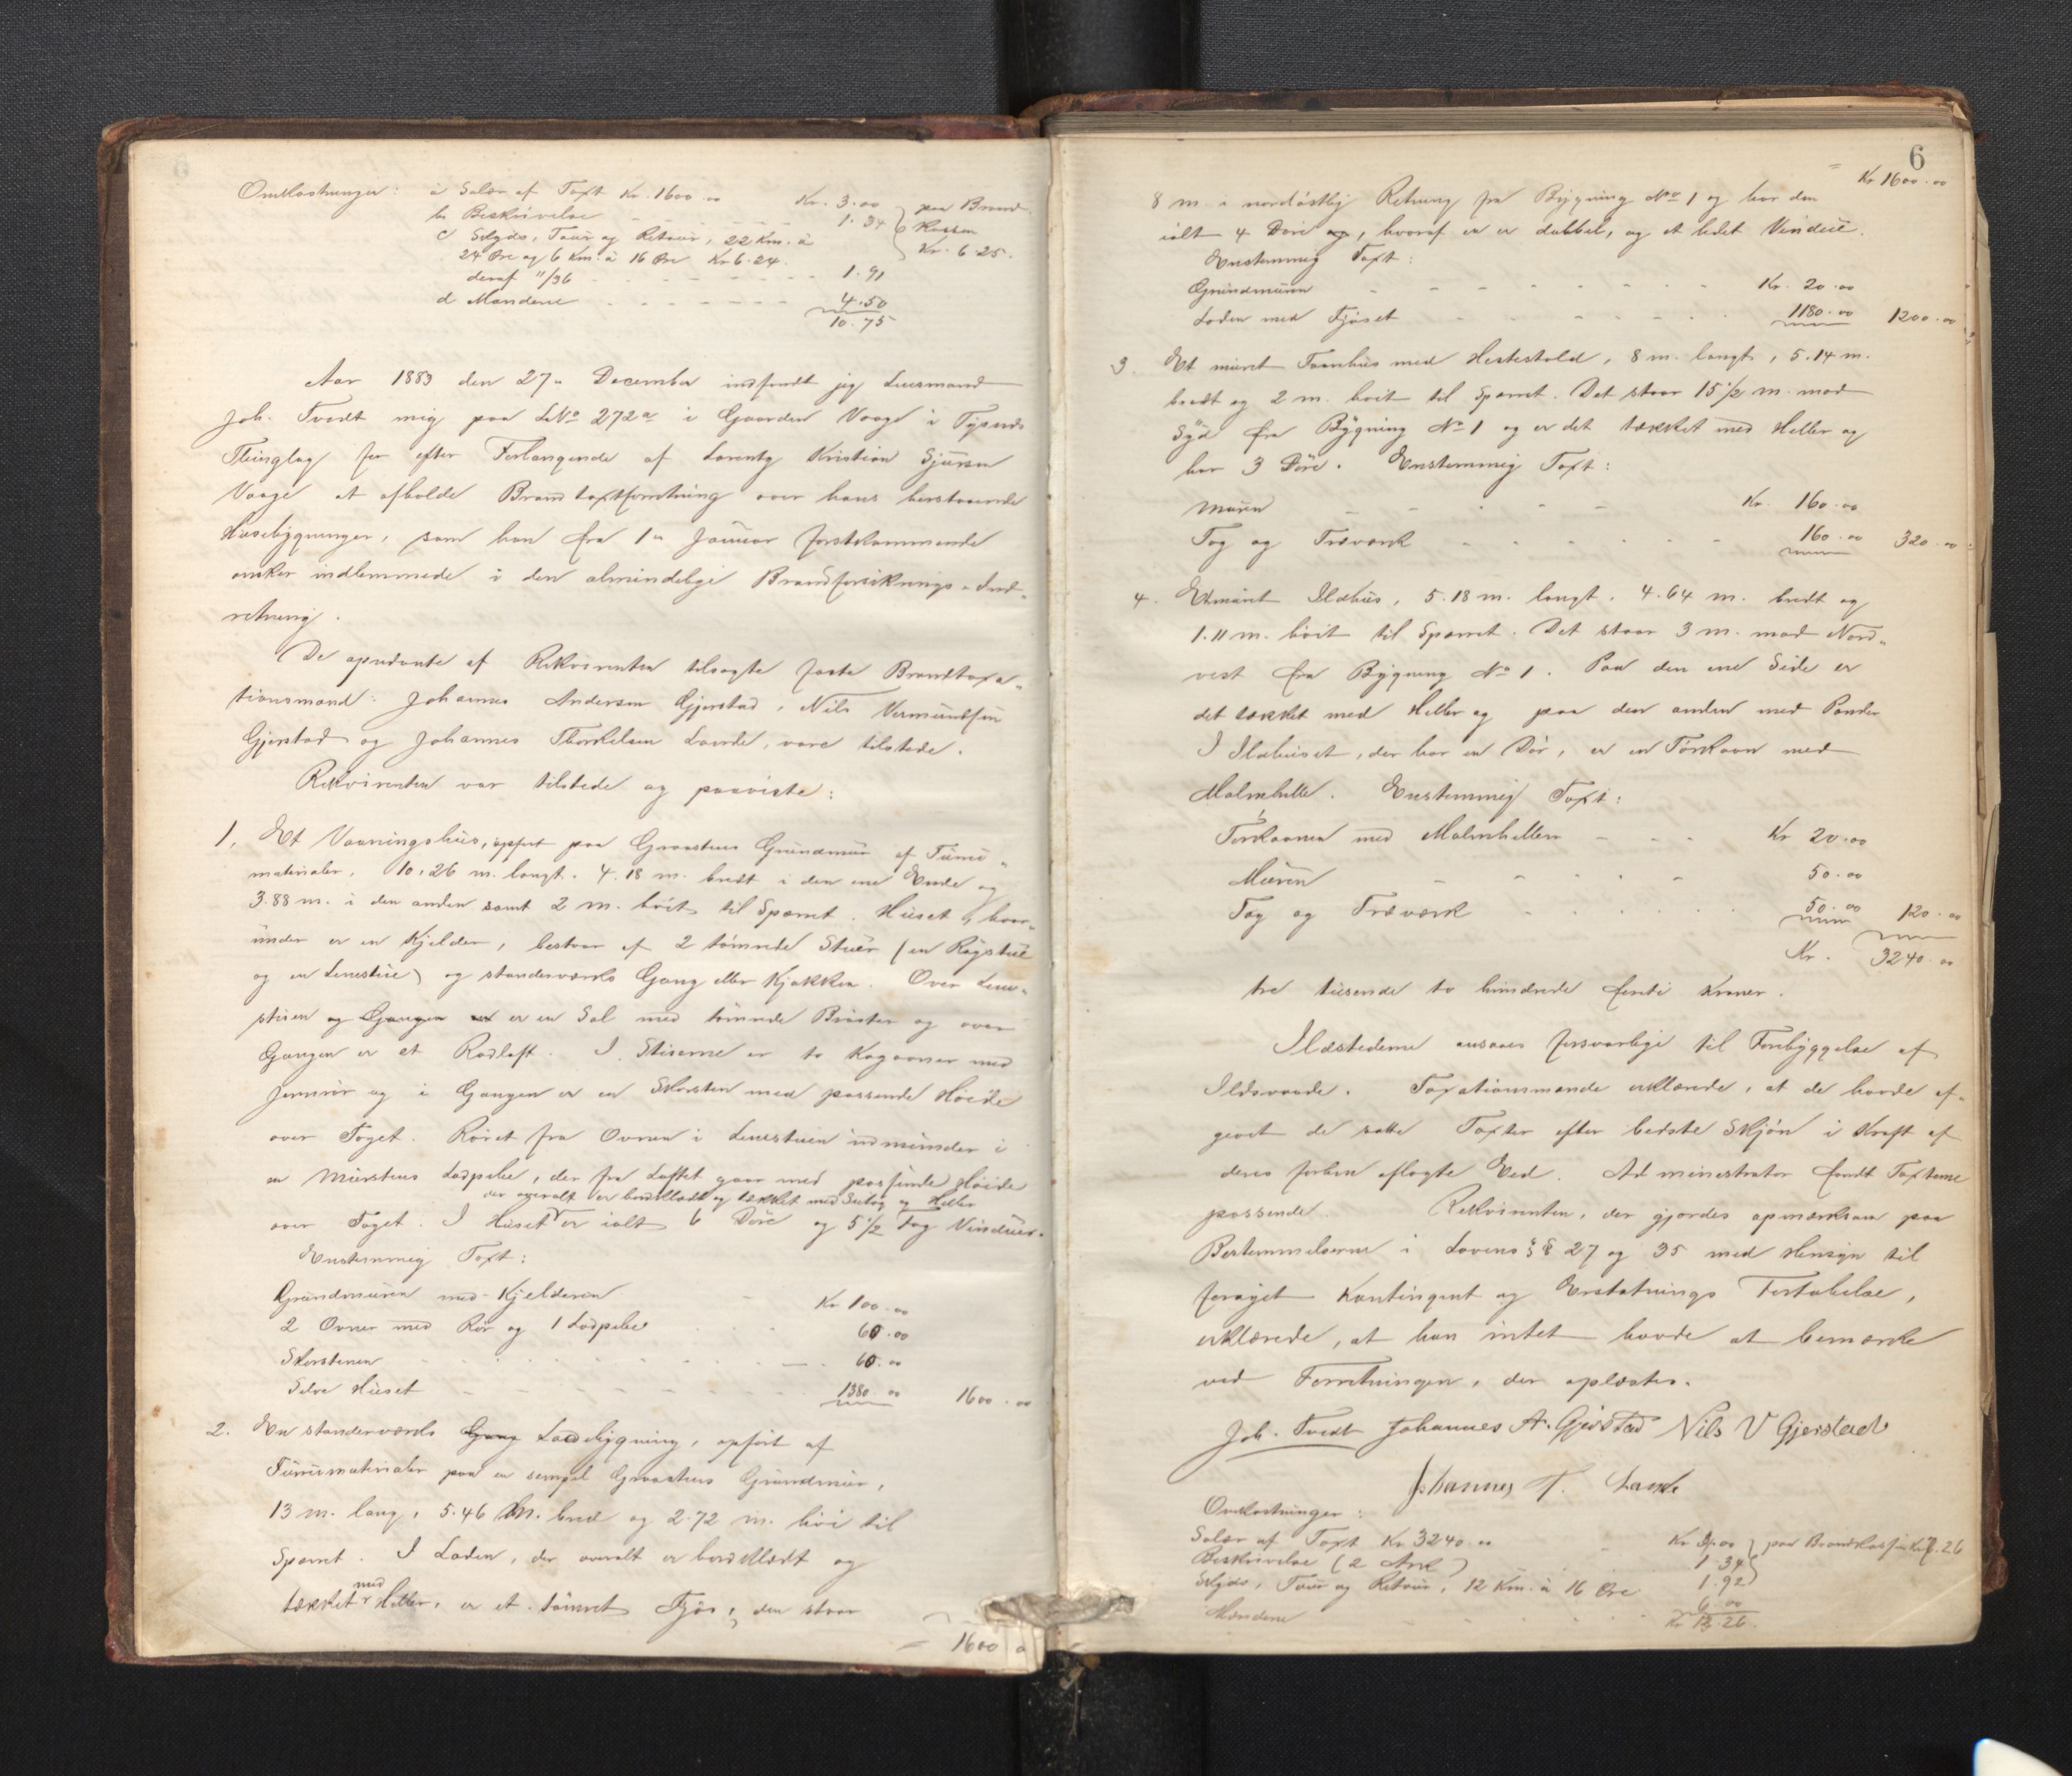 Omkostninger: a Salær af Taxt Kr. 1600.00 Kr. 3.00
b. Beskrivelse 1.34 paa Brand
c Skyds, Tour og Retour, 22 Km. à Kassen
24 Øre og 6 Km. à 16 Øre Kr 6.24. Kr. 6.25.
deraf 11/36 1.91
d Mændene 4.50
10.75
Aar 1883 den 27de December indfandt jeg Lensmand
Joh. Tvedt mig paa LNo 272a i Gaarden Vaage i Tysnæs
Thinglag for efter Forlangende af Lorentz Kristian Sjursen
Vaage at afholde Brandtaxtforretning over hans herstaaende
Husebygninger, som han fra 1ste Januar førstkommende
ønsker indlemmede i den almindelige Brandforsikrings-Ind-
retning.
De opnævnte af Rekvirenten tilsagte faste Brandtaxa-
tionsmænd: Johannes Andersen Gjerstad, Nils Vermundsen
Gjerstad og Johannes Thorkelsen Lande, vare tilstede.
Rekvirenten var tilstede og paaviste:
1. Et Vaaningshus, opført paa Graastens Grundmur af Furu-
materialer, 10.26 m. langt. 4.18 m. bredt i den ene Ende og
3.88 m. i den anden samt 2 m. høit til Sparret. Huset, hvor-
under er en Kjelder, bestaar af 2 tømrede Stuer (en Røgstue
og en Lenestue) og standerværks Gang eller Kjøkken. Over Lene-
stuen og Gangen er er en Sal med tømrede Brøster og over
Gangen er et Rødloft. I Stuerne er to Kogovner med
Jernrør og i Gangen er en Skorsten med passende Høide
over Taget. Røret fra Ovnen i Lenestuen udmunder i
en Murstens Lodpibe, der fra Loftet gaar med passende Høide
der overalt er bordklædt og tækket med Sutag og Heller
over Taget. I Huset er ialt 6 Døre og 5 1/2 Fag Vinduer.
Enstemmig Taxt:
Grundmuren med Kjelderen Kr 100.00
2 Ovner med Rør og 1 Lodpibe 60.00
Skorstenen 60.00
Selve Huset 1380.00 1600.00
2. En standerværks Gang Ladebygning, opført af
Furumaterialer paa en simpel Graastens Grundmur,
13 m. lang, 5.46 m. bred og 2.72 m. høi til
Sparret. I Laden, der overalt er bordklædt og
med
tækket Heller, er et tømret Fjøs; den staar
1600
6
Kr 1600.00
8 m. i nordøstlig Retning fra Bygning No 1 og har den
ialt 4 Døre og, hvoraf en er dobbel, og et lidet Vindue.
Enstemmig Taxt:
Grundmuren Kr. 20.00
Laden med Fjøset 1180.00 1200.00
3. Et muret Taarnhus med Hestestald, 8 m. langt, 5.14 m.
bredt og 2 m. høit til Sparret. Det staar 15 1/2 m. mod
Syd fra Bygning No 1 og er det tækket med Heller og
har 3 Døre. Enstemmig Taxt:
Muren Kr. 160.00
Tag og Træværk 160.00 320.00
4. Et muret Ildhus, 5.18 m. langt. 4.64 m. bredt og
1.11 m. høit til Sparret. Det staar 3 m. mod Nord-
vest fra Bygning No 1. Paa den ene Side er
det tækket med Heller og paa den anden med Pander
I Ildhuset, der har en Dør, er en Tørkaavn med
Malmhelle. Enstemmig Taxt:
Tørkaavnen med Malmhellen Kr 20.00
Muren 50.00
Tag og Træværk 50.00 120.00
Kr. 3240.00
tre tusende to hundrede firti Kroner.
Ildstederne ansaaes forsvarlige til Forebyggelse af
Ildsvaade. Taxationsmænde erklærede, at de havde af-
givet de satte Taxter efter bedste Skjøn i Kraft af
deres forhen aflagte Eed. Administrator fandt Taxterne
passende. Rekvirenten, der gjordes opmærksom paa
Bestemmelserne i Lovens §§ 27 og 35 med Hensyn til
forøget Kontingent og Erstatnings Fortabelse,
erklærede, at han intet havde at bemærke
ved Forretningen, der oplæstes.
Joh. Tvedt Johannes A. Gjerstad Nils V Gjerstad
Johannes T. Lande
Omkostninger:
Salær af Taxt Kr 3240.00 Kr 4.00 paa Brandkassen Kr 7.26
Beskrivelse (2 Ark) 1.34
Skyds, Tour og Retour, 12 Km. à 16 Øre 1.92
Mændene 6.00
Kr 13.26.